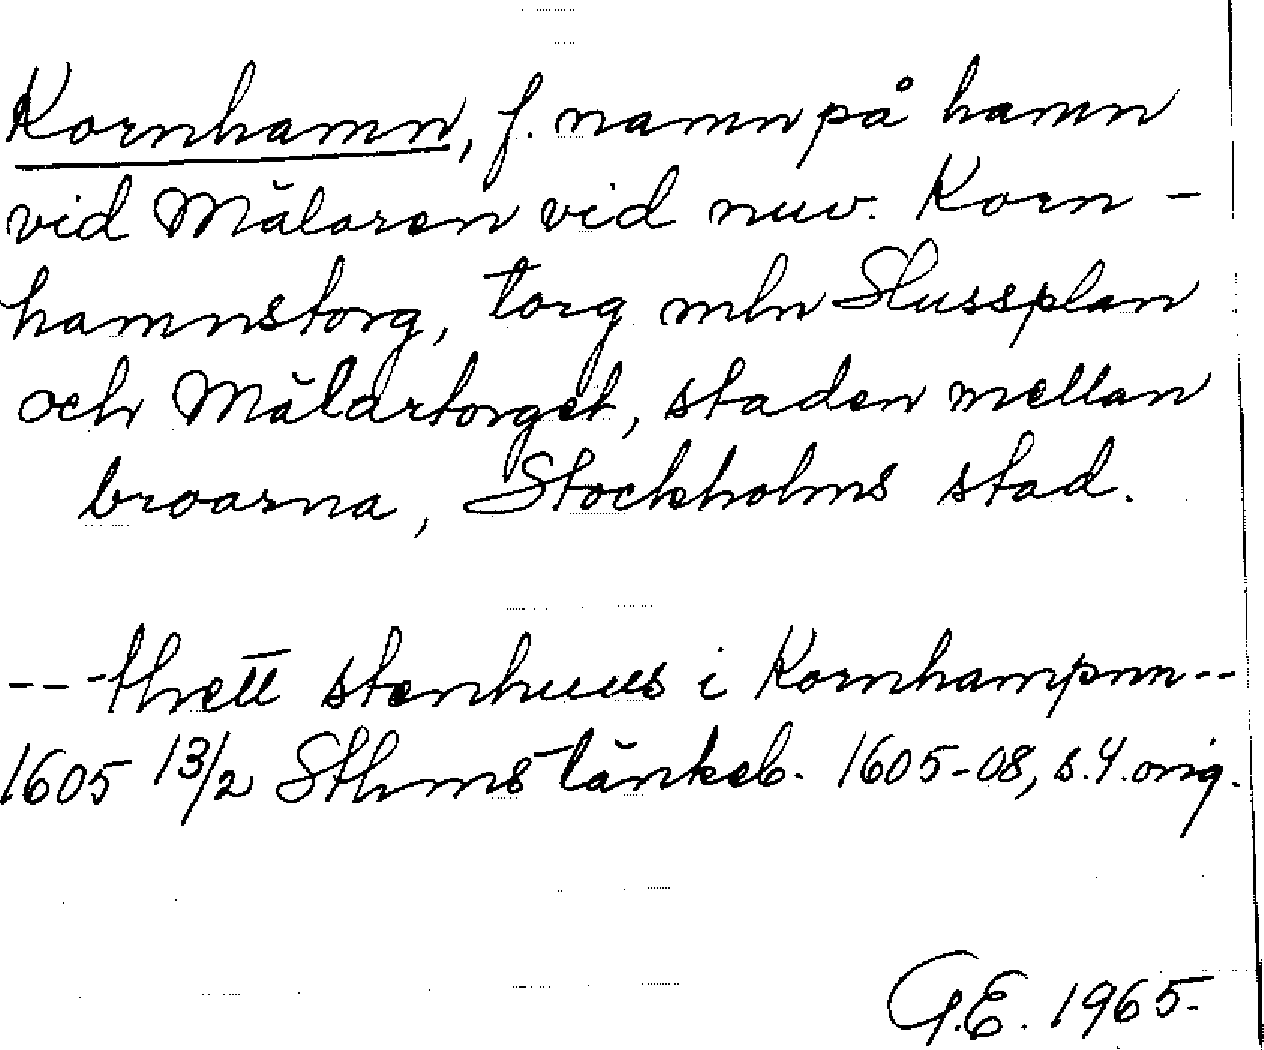 Kornhamn, f. namn på hamn
vid Mälaren vid nuv. Korn-
hamnstorg, torg mln Slussplan
och Mälartorget, staden mellan
broarna, Stockholms stad.
--- thett stenhuus i Kornhampnn --
1605 13/2 Sthms tänkeb. 1605-08, s.4.orig.
G.E. 1965.